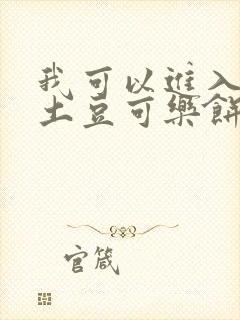 我可以進入
土豆可樂餅
官箴